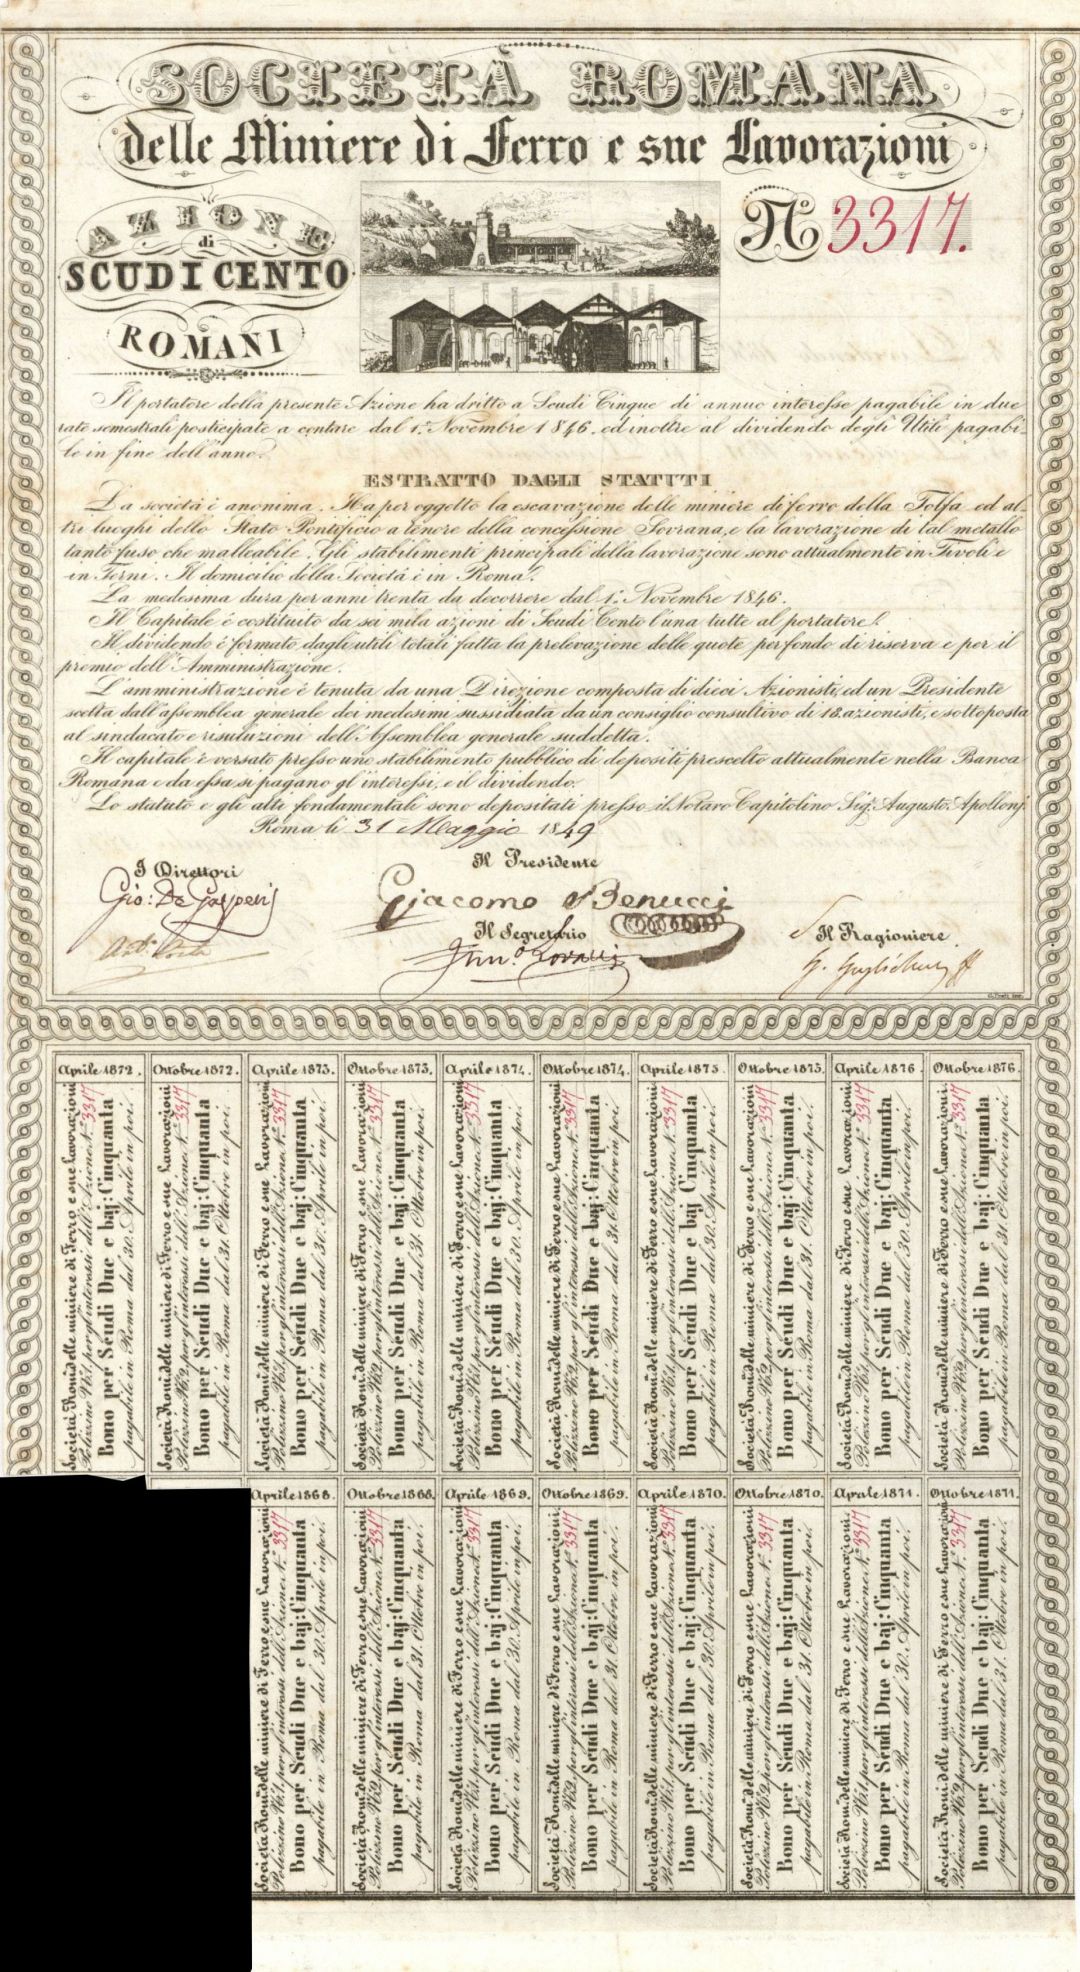 SOCIETÀ ROMANA
delle Miniere di Ferro e sue Lavorazioni
AZIONE
di
SCUDI CENTO
ROMANI
N.o 3317.
Il portatore della presente Azione ha dritto a Scudi Cinque di annuo interesse pagabile in due
rate semestrali posticipate a contare dal 1.o Novembre 1846. ed inoltre al dividendo degli Utili pagabi-
le in fine dell'anno.
ESTRATTO DAGLI STATUTI
La società è anonima. Ha per oggetto la escavazione delle miniere di ferro della Tolfa ed al-
tri luoghi dello Stato Pontificio a tenore della concessione Sovrana, e la lavorazione di tal metallo
tanto fuso che malleabile. Gli stabilimenti principali della lavorazione sono attualmente in Tivoli e
in Terni. Il domicilio della Società è in Roma.
La medesima dura per anni trenta da decorrere dal 1.o Novembre 1846.
Il Capitale è costituito da sei mila azioni di Scudi Cento l'una tutte al portatore.
Il dividendo è formato dagli utili totali fatta la prelevazione delle quote per fondo di riserva e per il
premio dell'Amministrazione.
L'amministrazione è tenuta da una Direzione composta di dieci Azionisti, ed un Presidente
scelta dall'assemblea generale dei medesimi sussidiata da un consiglio consultivo di 18. azionisti, e sottoposta
al sindacato e risoluzioni dell'Assemblea generale suddetta.
Il capitale è versato presso uno stabilimento pubblico di depositi prescelto attualmente nella Banca
Romana e da essa si pagano gl'interessi, e il dividendo.
Lo statuto e gli atti fondamentali sono depositati presso il Notaro Capitolino Sig. Augusto Apollonj.
Roma li 31 Maggio 1849
I Direttori
Il Presidente
Gio: De Gasperis
Giacomo Benucci
Il Segretario
Il Ragioniere
Aprile 1872. Ottobre 1872. Aprile 1873. Ottobre 1873. Aprile 1874. Ottobre 1874. Aprile 1875 Ottobre 1875. Aprile 1876 Ottobre 1876.
Società Rom. delle miniere di Ferro e sue Lavorazioni
Polizzino N.o 1. per gl'interessi dell'Azione N.o 3317
Bono per Scudi Due e baj: Cinquanta
pagabile in Roma dal 30. Aprile in poi.
Società Rom. delle miniere di Ferro e sue Lavorazioni
Polizzino N.o 2. per gl'interessi dell'Azione N.o 3317
Bono per Scudi Due e baj: Cinquanta
pagabile in Roma dal 31. Ottobre in poi.
Società Rom. delle miniere di Ferro e sue Lavorazioni
Polizzino N.o 1. per gl'interessi dell'Azione N.o 3317
Bono per Scudi Due e baj: Cinquanta
pagabile in Roma dal 30. Aprile in poi.
Società Rom. delle miniere di Ferro e sue Lavorazioni
Polizzino N.o 2. per gl'interessi dell'Azione N.o 3317
Bono per Scudi Due e baj: Cinquanta
pagabile in Roma dal 31. Ottobre in poi.
Società Rom. delle miniere di Ferro e sue Lavorazioni
Polizzino N.o 1. per gl'interessi dell'Azione N.o 3317
Bono per Scudi Due e baj: Cinquanta
pagabile in Roma dal 30. Aprile in poi.
Società Rom. delle miniere di Ferro e sue Lavorazioni
Polizzino N.o 2. per gl'interessi dell'Azione N.o 3317
Bono per Scudi Due e baj: Cinquanta
pagabile in Roma dal 31. Ottobre in poi.
Società Rom. delle miniere di Ferro e sue Lavorazioni
Polizzino N.o 1. per gl'interessi dell'Azione N.o 3317
Bono per Scudi Due e baj: Cinquanta
pagabile in Roma dal 30. Aprile in poi.
Società Rom. delle miniere di Ferro e sue Lavorazioni
Polizzino N.o 2. per gl'interessi dell'Azione N.o 3317
Bono per Scudi Due e baj: Cinquanta
pagabile in Roma dal 31. Ottobre in poi.
Società Rom. delle miniere di Ferro e sue Lavorazioni
Polizzino N.o 1. per gl'interessi dell'Azione N.o 3317
Bono per Scudi Due e baj: Cinquanta
pagabile in Roma dal 30. Aprile in poi.
Società Rom. delle miniere di Ferro e sue Lavorazioni
Polizzino N.o 2. per gl'interessi dell'Azione N.o 3317
Bono per Scudi Due e baj: Cinquanta
pagabile in Roma dal 31. Ottobre in poi.
Aprile 1868. Ottobre 1868. Aprile 1869. Ottobre 1869. Aprile 1870. Ottobre 1870. Aprale 1871. Ottobre 1871.
Società Rom. delle miniere di Ferro e sue Lavorazioni
Polizzino N.o 1. per gl'interessi dell'Azione N.o 3317
Bono per Scudi Due e baj: Cinquanta
pagabile in Roma dal 30. Aprile in poi.
Società Rom. delle miniere di Ferro e sue Lavorazioni
Polizzino N.o 2. per gl'interessi dell'Azione N.o 3317
Bono per Scudi Due e baj: Cinquanta
pagabile in Roma dal 31. Ottobre in poi.
Società Rom. delle miniere di Ferro e sue Lavorazioni
Polizzino N.o 1. per gl'interessi dell'Azione N.o 3317
Bono per Scudi Due e baj: Cinquanta
pagabile in Roma dal 30. Aprile in poi.
Società Rom. delle miniere di Ferro e sue Lavorazioni
Polizzino N.o 2. per gl'interessi dell'Azione N.o 3317
Bono per Scudi Due e baj: Cinquanta
pagabile in Roma dal 31. Ottobre in poi.
Società Rom. delle miniere di Ferro e sue Lavorazioni
Polizzino N.o 1. per gl'interessi dell'Azione N.o 3317
Bono per Scudi Due e baj: Cinquanta
pagabile in Roma dal 30. Aprile in poi.
Società Rom. delle miniere di Ferro e sue Lavorazioni
Polizzino N.o 2. per gl'interessi dell'Azione N.o 3317
Bono per Scudi Due e baj: Cinquanta
pagabile in Roma dal 31. Ottobre in poi.
Società Rom. delle miniere di Ferro e sue Lavorazioni
Polizzino N.o 1. per gl'interessi dell'Azione N.o 3317
Bono per Scudi Due e baj: Cinquanta
pagabile in Roma dal 30. Aprile in poi.
Società Rom. delle miniere di Ferro e sue Lavorazioni
Polizzino N.o 2. per gl'interessi dell'Azione N.o 3317
Bono per Scudi Due e baj: Cinquanta
pagabile in Roma dal 31. Ottobre in poi.